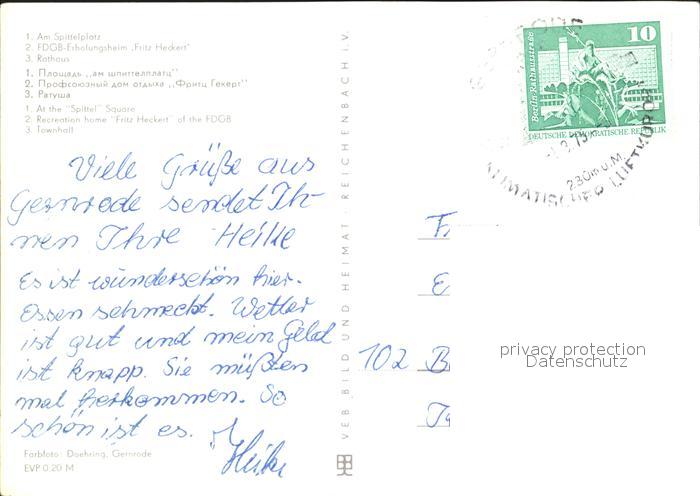 1. Am Spittelplatz
2. FDGB-Erholungsheim „Fritz Heckert"
3. Rathaus
1. Площадь „ам шпиттелплатц"
2. Профсоюзный дом отдыха „Фритц Гекерт"
3. Ратуша
1. At the "Spittel" Square
2. Recreation home "Fritz Heckert" of the FDGB
3. Townhall
Viele Grüße aus
Gernrode sendet Ih-
nen Ihre Heike
Es ist wunderschön hier.
Essen schmeckt. Wetter
ist gut und mein Geld
ist knapp. Sie müßten
mal herkommen. So
schön ist es.
Heike
Farbfoto: Doehring, Gernrode
EVP 0,20 M
VEB BILD UND HEIMAT · REICHENBACH i. V.
10
Berlin, Rathausstraße
DEUTSCHE DEMOKRATISCHE REPUBLIK
230m ü. M.
KLIMATISCHER LUFTKURORT
F
E
102 B
privacy protection
Datenschutz